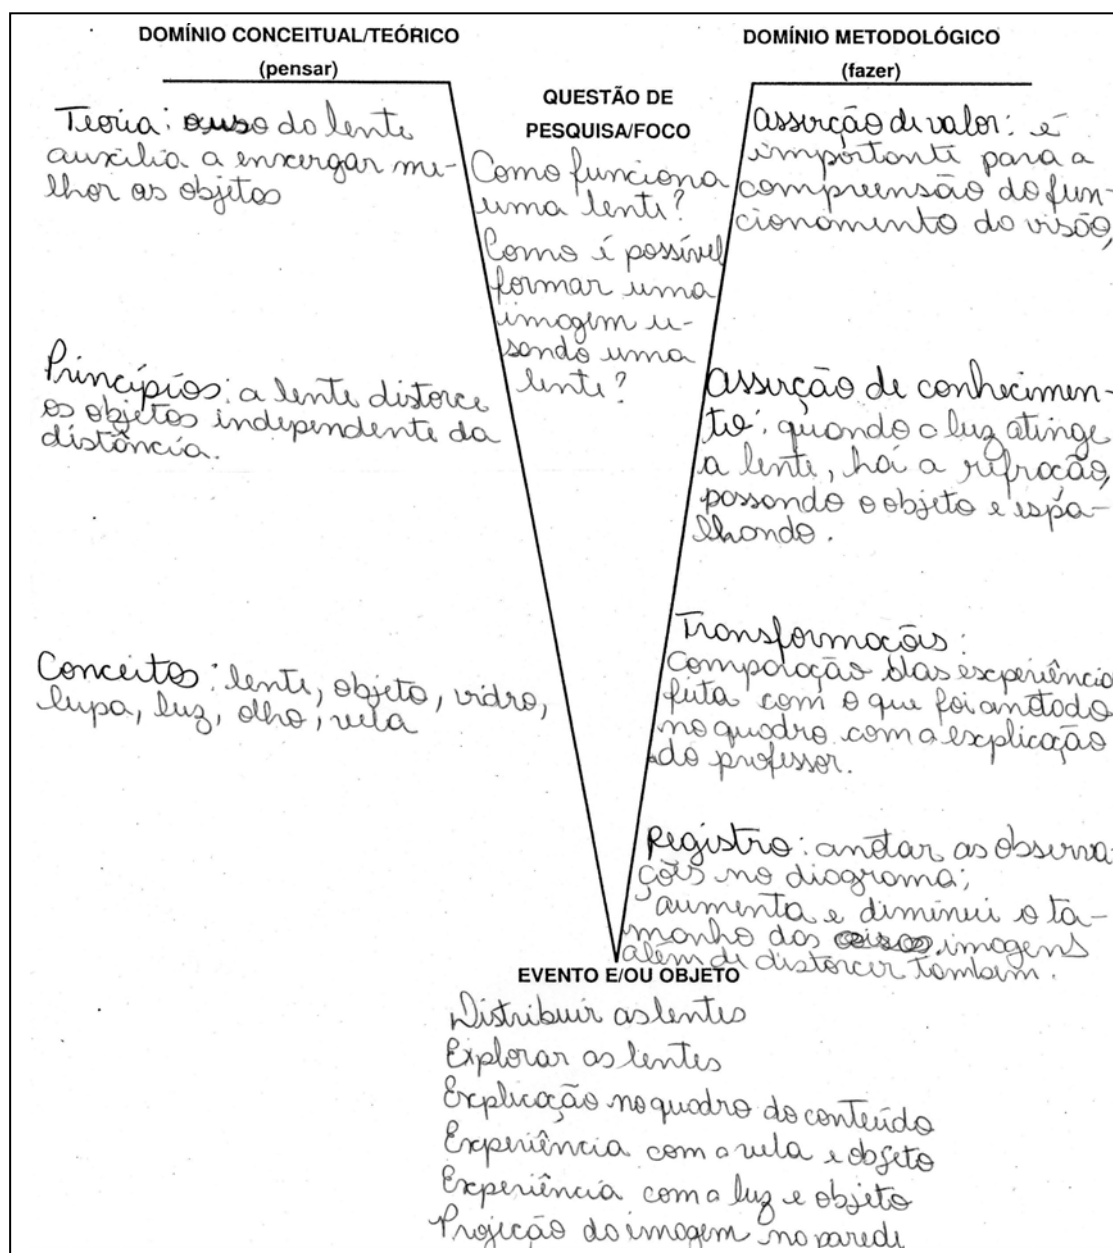 DOMÍNIO CONCEITUAL/TEÓRICO
(pensar)
Teoria: o uso da lente
auxilia a enxergar me-
lhor os objetos
Princípios: a lente distorce
os objetos independente da
distância.
Conceitos: lente, objeto, vidro,
lupa, luz, olho, vela
QUESTÃO DE
PESQUISA/FOCO
Como funciona
uma lente?
Como é possível
formar uma
imagem u-
sando uma
lente?
DOMÍNIO METODOLÓGICO
(fazer)
Asserção de valor: é
importante para a
compreensão do fun-
cionamento da visão,
Asserção de conhecimen-
to: quando a luz atinge
a lente, há a refração,
passando o objeto e espa-
lhando.
Transformações:
Comparação das experiência
feita com o que foi anotado
no quadro com a explicação
do professor.
Registro: anotar as observa-
ções no diagrama;
aumenta e diminui o ta-
manho das imagens
além de distorcer também.
EVENTO E/OU OBJETO
Distribuir as lentes
Explorar as lentes
Explicação no quadro do conteúdo
Experiência com a vela e objeto
Experiência com a luz e objeto
Projeção da imagem na parede